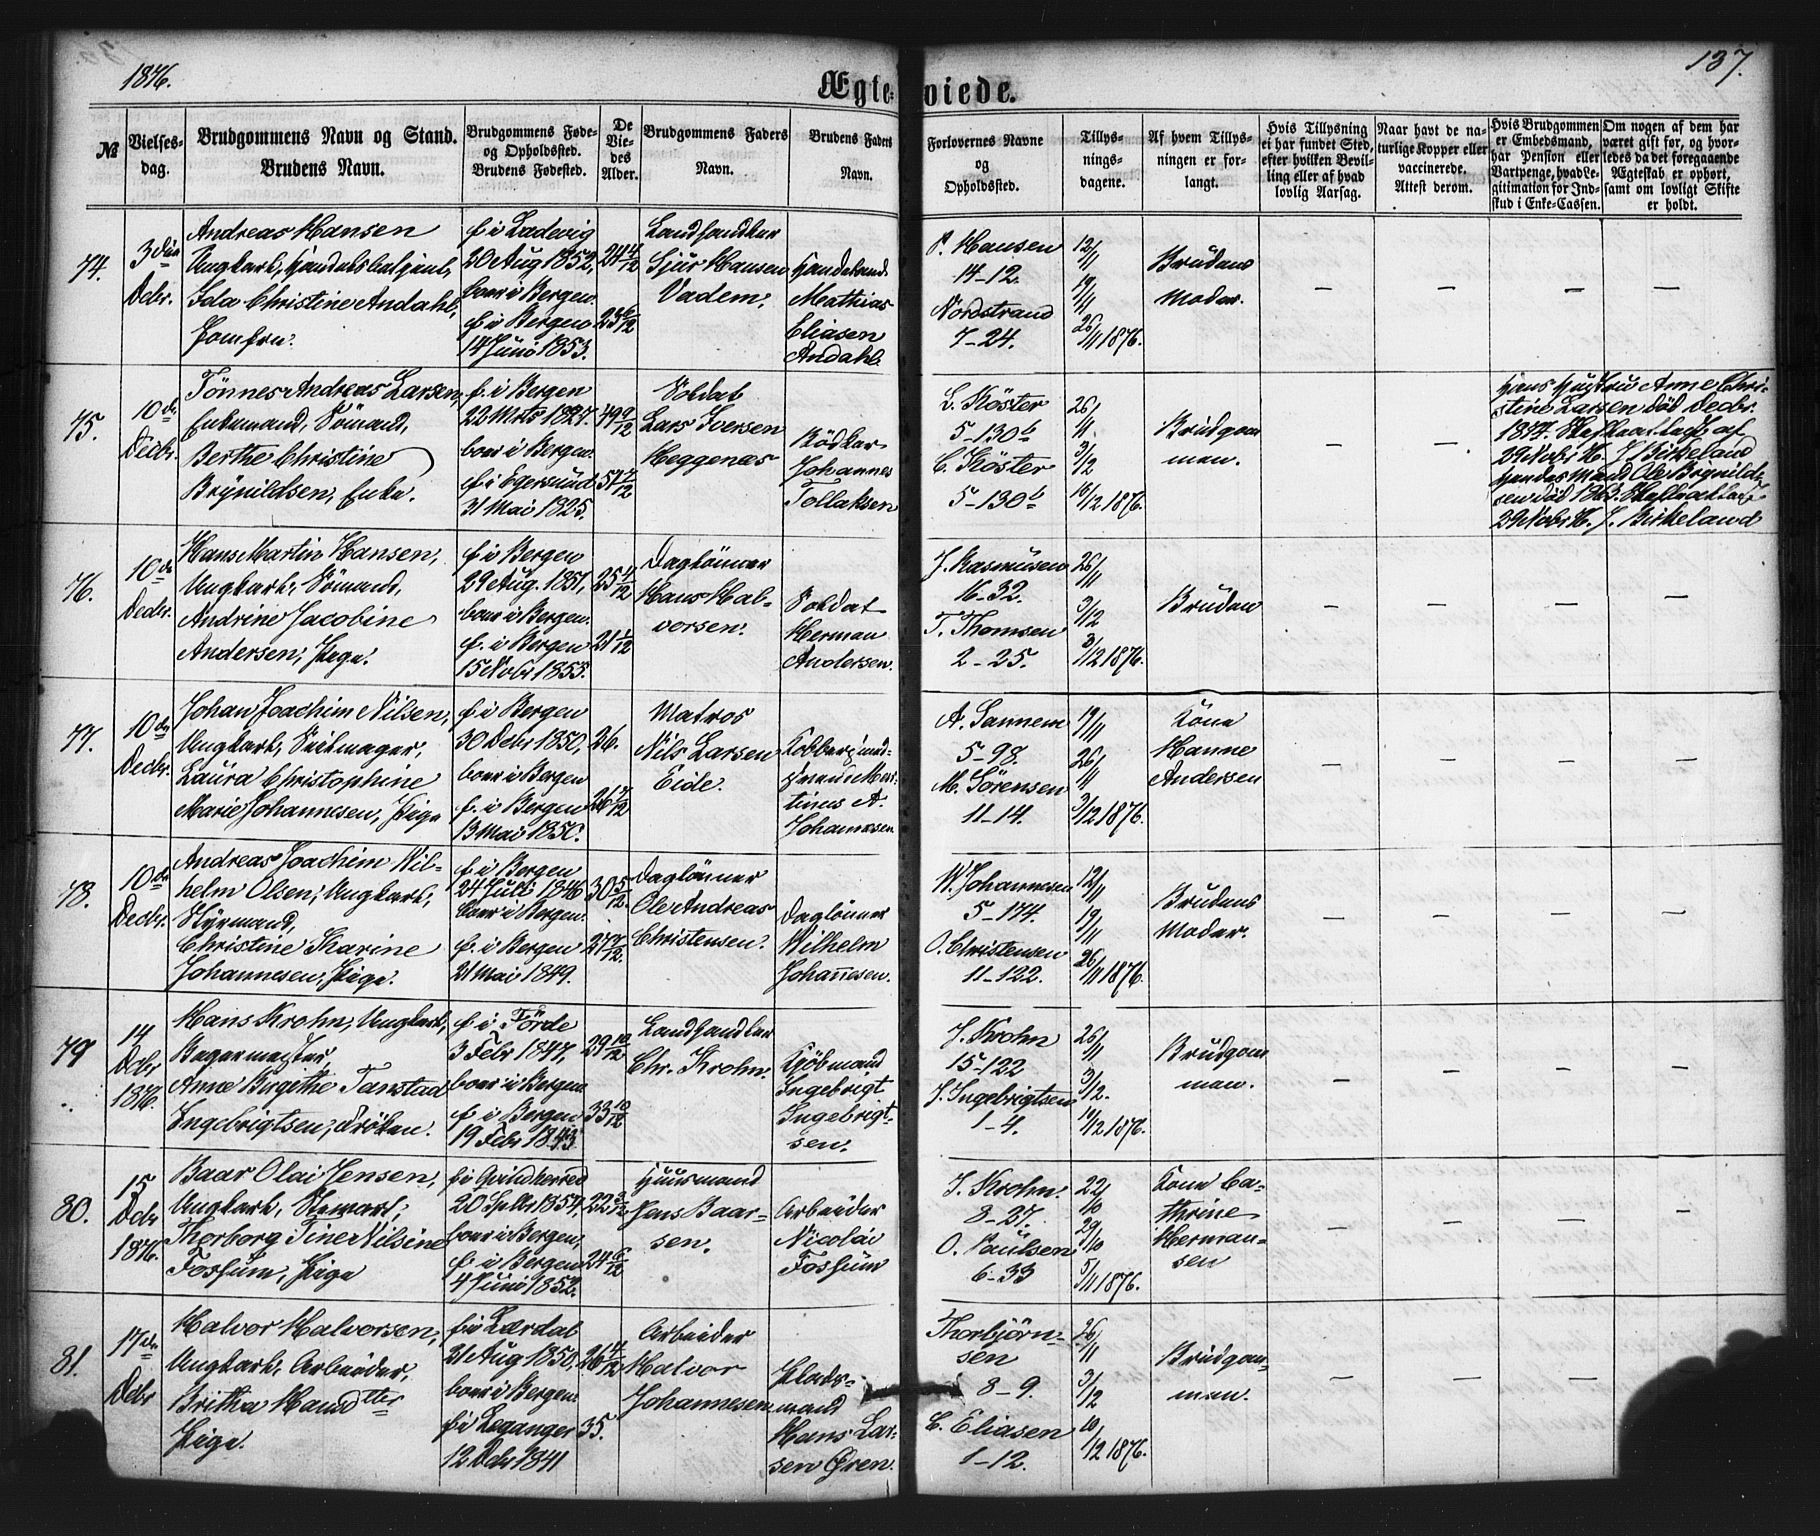 1876.
137.
Ægteviede.
№
Vielses-
dag.
Brudgommens Navn og Stand.
Brudens Navn.
Brudgommens Føde-
og Opholdssted.
Brudens Fødested.
De
Vie-
des
Alder.
Brudgommens Faders
Navn.
Brudens Faders
Navn.
Forlovernes Navne
og
Opholdssted.
Tillys-
nings-
dagene.
Af hvem Tillys-
ningen er for-
langt.
Hvis Tillysning
ei har fundet Sted,
efter hvilken Bevil-
ling eller af hvad
lovlig Aarsag.
Naar havt de na-
turlige Kopper eller
vaccinerede.
Attest derom.
Hvis Brudgommen
er Embedsmand,
har Pension eller
Vartpenge, hvad Le-
gitimation for Ind-
skud i Enke-Cassen.
Om nogen af dem har
været gift før, og hvor-
ledes da det foregaaende
Ægteskab er ophørt,
samt om lovligt Skifte
er holdt.
74.
3die
Decbr.
Andreas Hansen
Ungkarl, Handelsbetjent,
Ida Christine Andahl,
Jomfru.
f. i Ladevig
20 Aug 1852,
boer i Bergen.
f. i Bergen
14 Juni 1853.
24 4/12
23 6/12
Landhandler
Sjur Hansen
Vadem.
Handelsmd.
Mathias
Eliasen
Andahl.
P. Hansen
14-12.
Nordstrand
7-24.
12/11
19/11
26/11 1876.
Brudens
Moder.
75.
10de
Decbr.
Tønnes Andreas Larsen,
Enkemand, Sömand,
Berthe Christine
Brynildsen, Enke.
f. i Bergen
22 Mrts 1827.
boer i Bergen.
f. i Egersund
31 Mai 1825.
49 9/12
51 7/12
Soldat
Lars Iversen
Heggenæs
Bödker
Johannes
Tollaksen
L. Köster
5-130b
C. Köster
5-130b
26/11
3/12
10/12 1876.
Brudgom
men.
Hans Hustru Anne Chri-
stine Larsen död Decbr.
1874. Skifteattest af
29 Nobr 76. J Birkeland
Hendes Mand Ole Brynild-
sen död 1863. Skifteattest
29 Nobr 76. J. Birkeland
76.
10de
Decbr.
Hans Martin Hansen,
Ungkarl, Sömand,
Andrine Jacobine
Andersen, Pige.
f. i Bergen
29 Aug. 1851,
boer i Bergen.
f. i Bergen
15 Nobr 1855.
25 4/12
21 1/12
Daglönner
Hans Hal-
vorsen.
Soldat
Herman
Andersen.
J. Rasmusen
16-32.
T. Thomsen
2-25.
26/11
3/12
3/12 1876.
Bruden
77.
10de
Decbr.
Johan Joachim Nilsen,
Ungkarl, Seilmager,
Laura Christophine
Marie Johannesen, Pige
f. i Bergen
30 Decbr 1850,
boer i Bergen
f. i Bergen
13 Mai 1850.
26.
26 7/12
Matros
Nils Larsen
Eide.
Kobbersmed-
svend Mar-
tinus A.
Johannesen
A. Sannem
5-98.
M. Sörensen
11-14.
19/11
26/11
3/12 1876.
Kone
Hanne
Andersen
78.
10de
Decbr.
Andreas Joachim Wil-
helm Olsen, Ungkarl,
Styrmand,
Christine Karine
Johannesen, Pige.
f. i Bergen
24 Juli 1846
boer i Bergen.
f. i Bergen
21 Mai 1849.
30 5/12.
27 7/12.
Daglönner
Ole Andreas
Christensen.
Daglönner
Wilhelm
Johanesen.
W. Johannesen
5-174.
O. Christensen
11-122.
12/11
19/11
26/11 1876.
Brudens
Moder.
79
14
Dcbr
1876.
Hans Krohn, Ungkarl,
Bagermester,
Anne Birgithe Tanstad
Ingebrigtsen, Fröken.
f. i Förde
3 Febr 1847,
boer i Bergen
f i Bergen
19 Febr 1843.
29 10/12
33 10/12
Landhandler
Chr. Krohn.
Kjöbmand
Ingebrigt
Ingebrigt-
sen.
J. Krohn
15-122
J. Ingebrigtsen
1-4.
26/11
3/12.
10/12 1876.
Brudgom
men.
80.
15
Dcbr
1876.
Baar Olai Jensen,
Ungkarl, Stuart,
Thorborg Tine Nilsine
Fossum, Pige
f. i Qvindherred
20 Sptbr 1854,
boer i Bergen,
f. i Bergen
4 Juni 1852.
22 3/12
24 6/12
Huusmand
Jens Baar-
sen.
Arbeider
Nicolai
Fossum
J. Krohn.
8-27.
O. Paulsen
6-33
22/10
29/10
5/11 1876.
Kone Ca-
thrine
Herman-
sen
81.
17de
Dcbr
Halvor Halvorsen,
Ungkarl, Arbeider,
Britha Hansdtter
Pige.
f. i Lærdal
21 Aug 1850,
boer i Bergen.
f. i Leganger
12 Dcbr 1841
26 4/12
35.
Arbeider
Halvor
Johannesen
Plads-
mand
Hans Lar-
sen Øren.
Thorbjörn-
sen
8-9.
C. Eliasen
1-12.
26/11
3/12
10/12 1876.
Brudgom-
men.